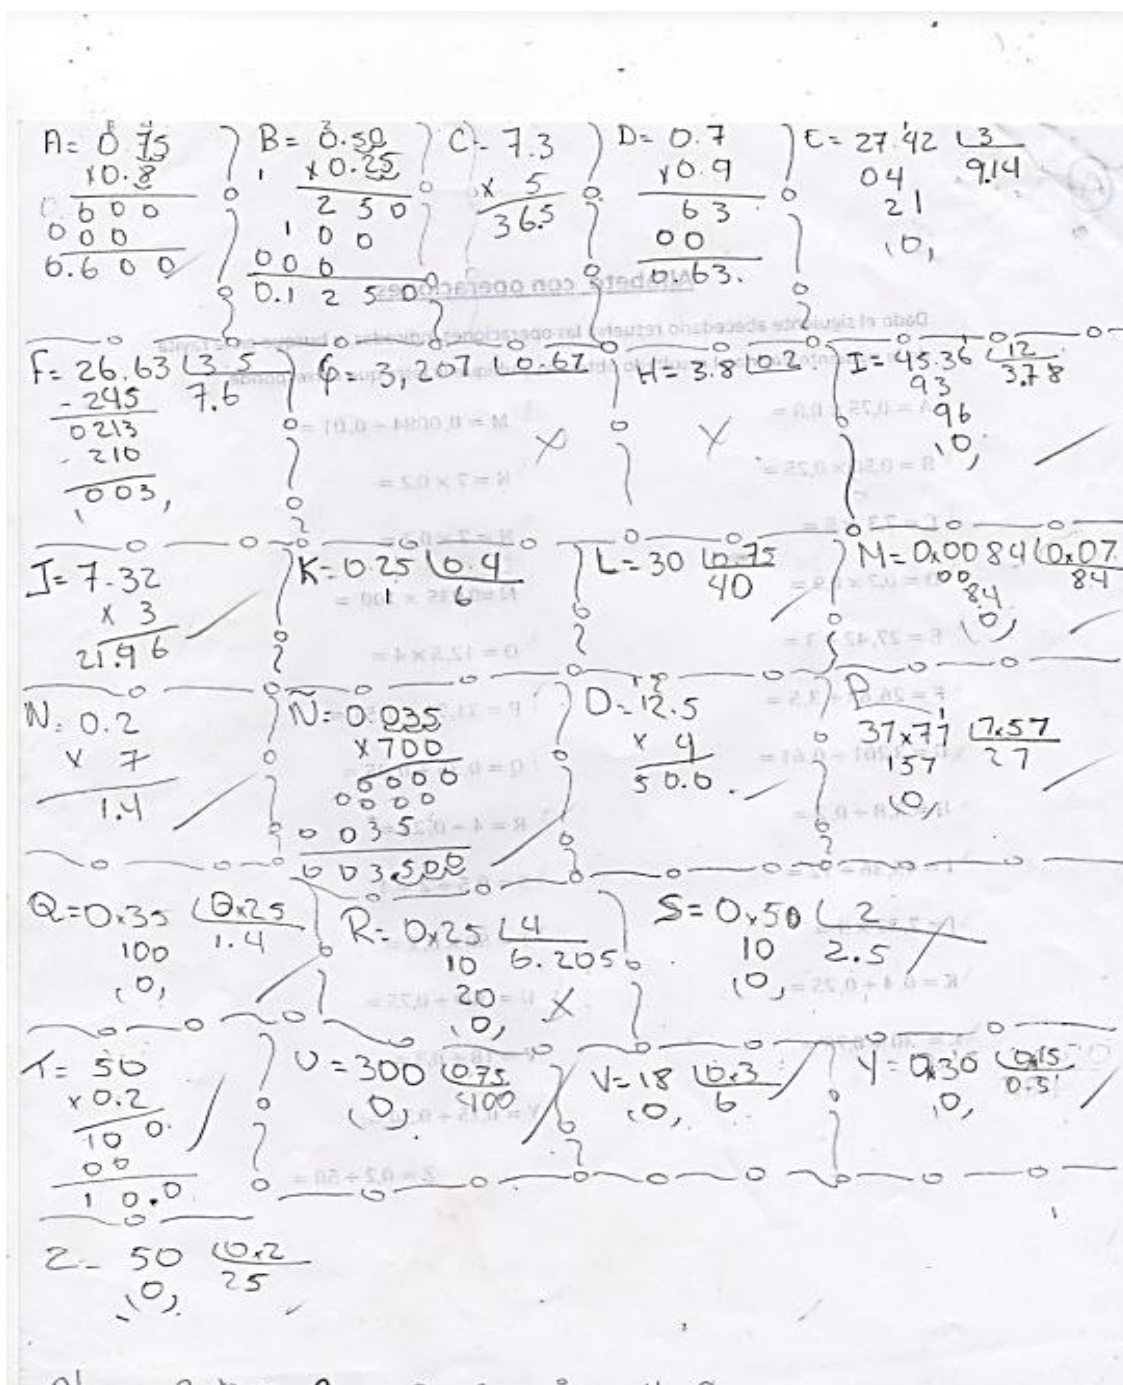 A= 0.75
x0.8
0.600
000
0.600
B= 0.50
x0.25
250
100
000
0.1250
C- 7.3
x 5
36.5
D= 0.7
x0.9
63
00
0.63.
E= 27.42 3
04 9.14
21
0,
F= 26.63 3.5
-245 7.6
0213
-210
003,
G= 3,207 0.67
X
H= 3.8 0.2
X
I= 45.36 12
93 3.78
96
0,
J= 7.32
x 3
21.96
K= 0.25 0.4
1 6
L= 30 0.75
40
M= 0x0084 0x07
00 84
84
0,
N= 0.2
x 7
1.4
Ñ= 0.035
x700
0000
0000
0035
003.500
O= 12.5
x 4
50.0.
P
37x77 7x57
157 27
0,
Q=0x35 0x25
100 1.4
0,
R= 0x25 4
10 6.205
20
0, X
S= 0x50 2
10 2.5
0,
T= 50
x0.2
100.
00
10.0
U= 300 0.75
0, 400
V= 18 0x3
0, 6
Y= 0x30 0x15
0,
Z- 50 0x2
0, 25